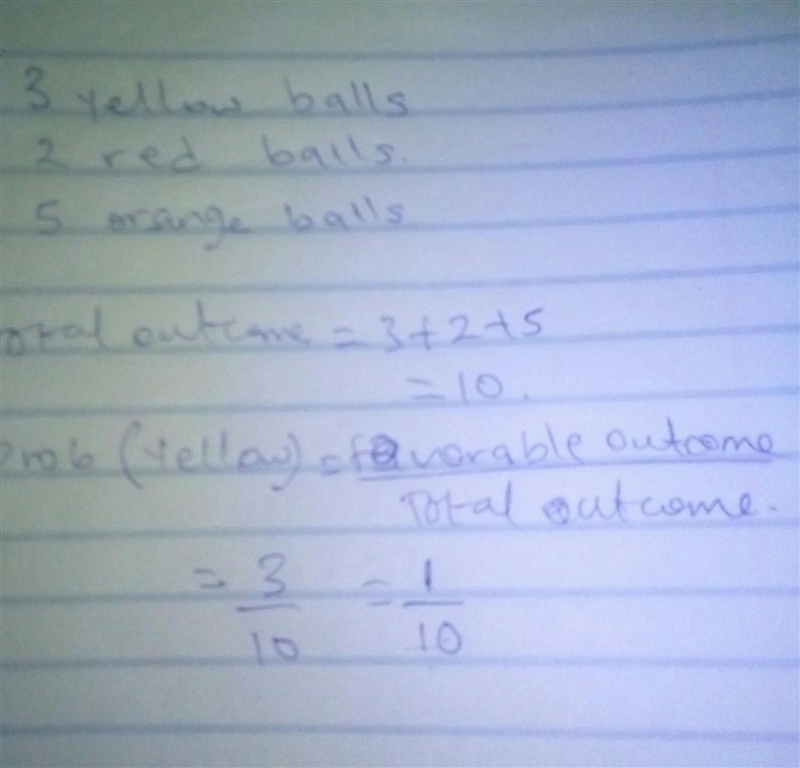 3 yellow balls
2 red balls.
5 orange balls
otal outcome = 3+2+5
= 10.
Prob (Yellow) = favorable outcome
Total outcome.
= 3/10 = 1/10